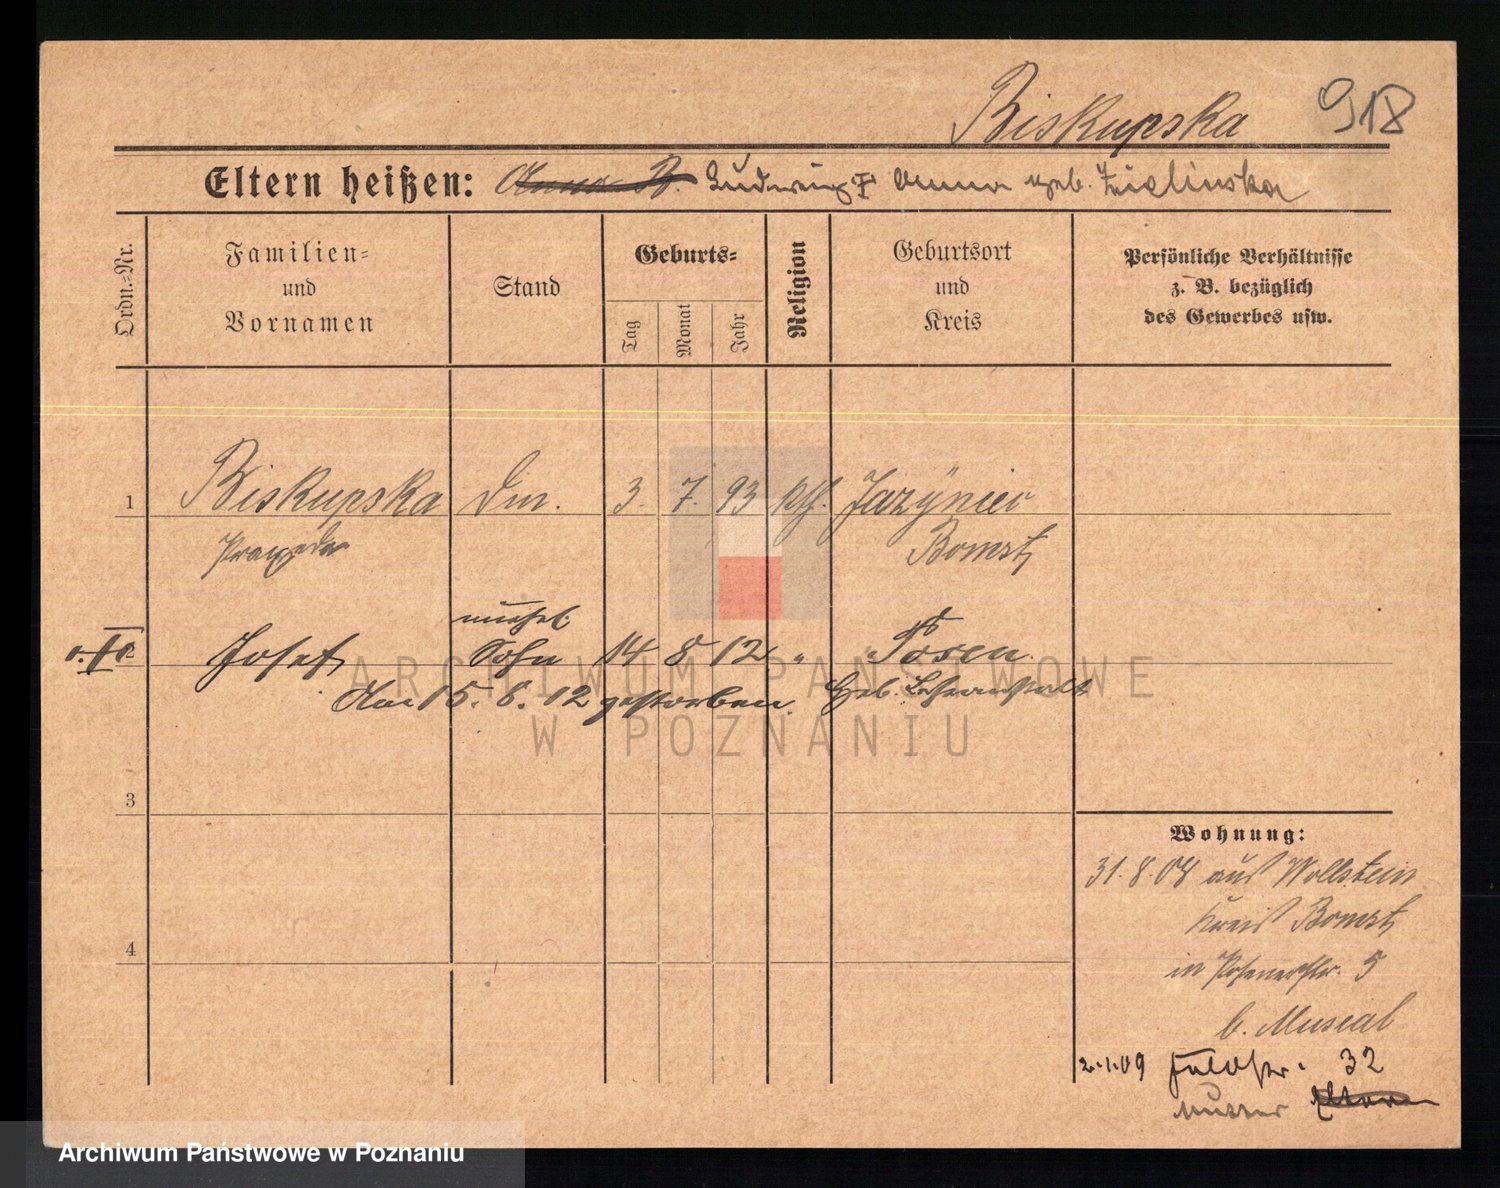 Biskupska 918
Eltern heißen: Ludwig † Anna geb. Zielinska
Ordn.-Nr.
Familien- und Vornamen
Stand
Geburts-
Tag
Monat
Jahr
Religion
Geburtsort und Kreis
Persönliche Verhältnisse z. B. bezüglich des Gewerbes usw.
1 Biskupska 3. 7. 93 kth.
Praxeda Bomst
Josef Sohn 14 8 12 " Posen
Am 15. 8. 12 gestorben. Heb. Lehranstalt
3
4
Wohnung:
31. 8. 08 aus Wollstein
Kreis Bomst
in Posenerstr. 5
b. Museal
2.1.09 Feldstr. 32
Mutter
ARCHIWUM PAŃSTWOWE
W POZNANIU
Archiwum Państwowe w Poznaniu